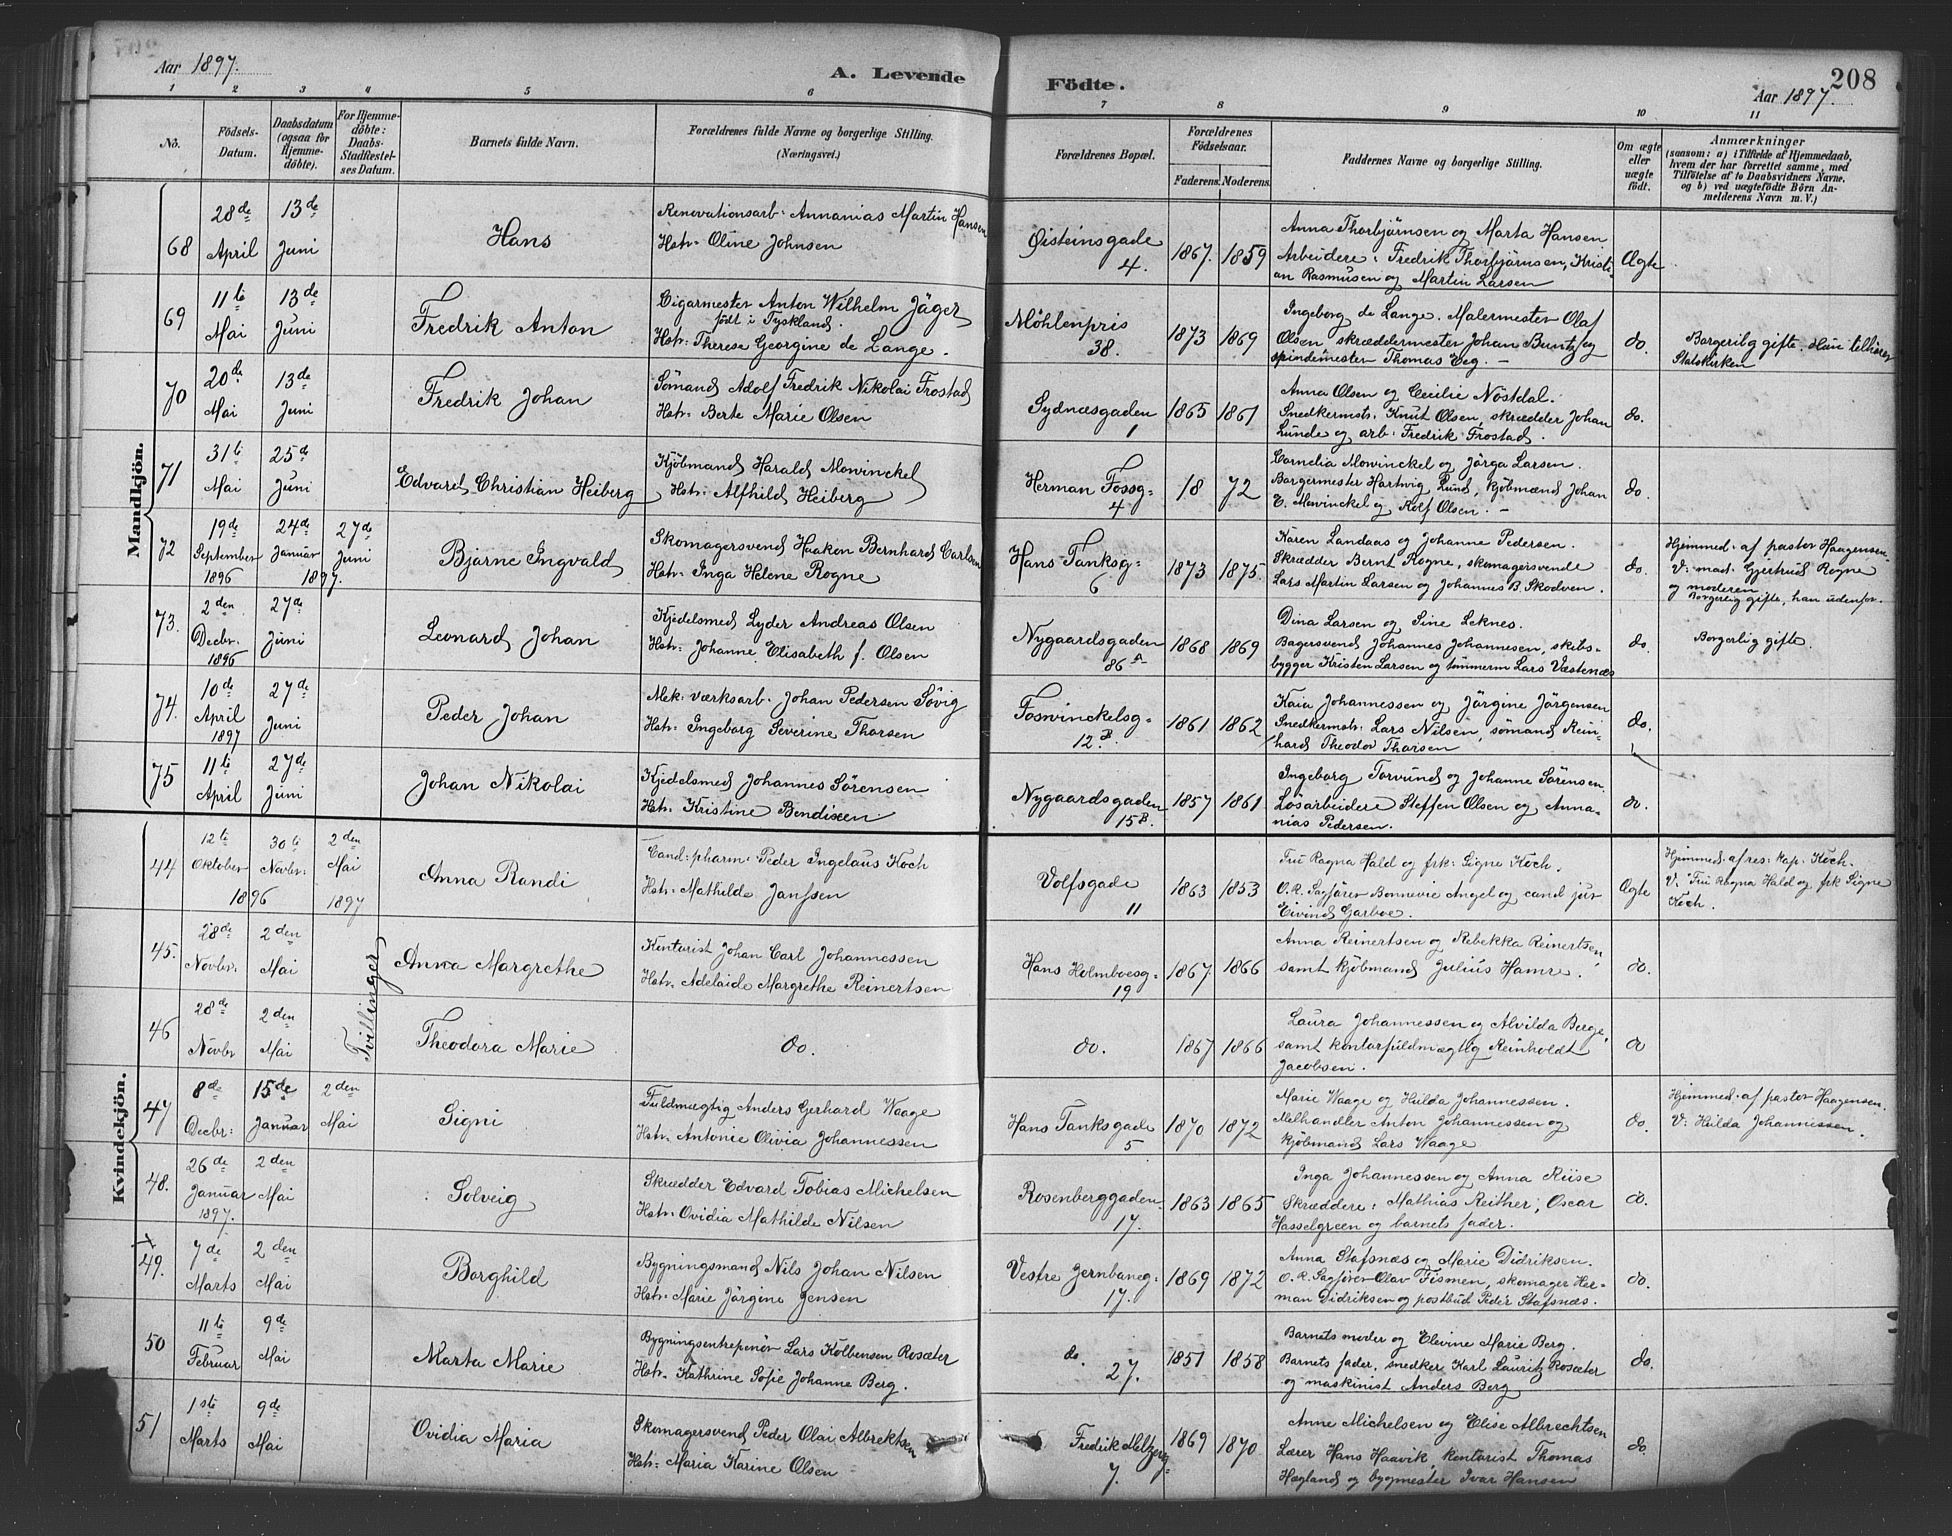 Aar 1897.
A. Levende
Födte.
208
Aar 1897.
1 2 3 4 5 6 7 8 9 10 11
No.
Födsels-
Datum.
Daabsdatum
(ogsaa for
Hjemme-
döbte).
For Hjemme-
döbte:
Daabs-
Stadfæstel-
ses Datum.
Barnets fulde Navn.
Forældrenes fulde Navne og borgerlige Stilling.
(Næringsvei.)
Forældrenes Bopæl.
Forældrenes
Födselsaar.
Faderens. Moderens.
Faddernes Navne og borgerlige Stilling.
Om ægte
eller
uægte
født.
Anmærkninger
(saasom: a) i Tilfælde af Hjemmedaab,
hvem der har forrettet samme, med
Tilföielse af to Daabsvidners Navne.
og b) ved uægtefödte Börn An-
melderens Navn m. V.)
Mandkjön.
68
28de April
13de Juni
Hans
Renovationsarb: Annanias Martin Hansen
Hstr: Oline Johnsen
Øisteinsgade
4.
1867. 1859
Anna Thorbjörnsen og Marta Hansen
Arbeidere: Fredrik Thorbjörnsen, Kristi-
an Rasmusen og Martin Larsen
Ægte
69
11te Mai
13de Juni
Fredrik Anton
Cigarmester Anton Wilhelm Jäger
født i Tyskland.
Hstr: Therese Georgine de Lange.
Möhlenpris
38.
1873 1869
Ingeborg de Lange. Malermester Olaf
Olsen skræddermester Johan Buntz og
spindemester Thomas Eeg. –
do.
Borgerlig gifte. Hun tilhører
Statskirken
70
20de Mai
13de Juni
Fredrik Johan
Sömand Adolf Fredrik Nikolai Frostad
Hstr: Berte Marie Olsen
Sydnæsgaden
1
1865 1861
Anna Olsen og Cecilie Nöstdal.
Snedkermstr. Knut Olsen, skrædder Johan
Lunde og arb: Fredrik Frostad.
do.
71
31te Mai
25de Juni
Edvard Christian Heiberg
Kjöbmand Harald Mowinckel
Hstr. Alfhild Heiberg
Herman Fossg:
4
18 72
Cornelia Mowinckel og Jörga Larsen.
Borgermester Hartvig Lund, kjöbmænd Johan
E. Mowinckel og Rolf Olsen. –
do.
72
19de September 1896
24de Januar 1897.
27de Juni
Bjarne Ingvald
Skomagersvend Haakon Bernhard Carlsen
Hstr: Inga Helene Rogne
Hans Tanksg:
6
1873 1875.
Karen Landaas og Johanne Pedersen.
Skrædder Bernt Rogne, skomagersvende
Lars Martin Larsen og Johannes B. Skodven.
do.
Hjemmed. af pastor Haagensen
V: mad. Gjertrud Rogne
og moderen
Borgerlig gifte, han udenfor.
73.
2den Decbr. 1896
27de Juni
Leonard Johan
Kjedelsmed Lyder Andreas Olsen
Hstr: Johanne Elisabeth f. Olsen
Nygaardsgaden
86 A
1868 1869
Dina Larsen og Sine Leknes.
Bagersvend Johannes Johannesen, skibs-
bygger Kristen Larsen og tømmerm Lars Væstenæs
do.
Borgerlig gifte.
74.
10de April 1897
27de Juni
Peder Johan
Mek: værksarb. Johan Pedersen Sövig
Hstr: Ingeborg Severine Thorsen
Fosvinckelsg:
12.B
1861 1862
Kaia Johannessen og Jörgine Jörgensen
Snedkermstr. Lars Nilsen, sömand Rein-
hard Theodor Thorsen
do.
75
11te April
27de Juni
Johan Nikolai
Kjedelsmed Johannes Sörensen
Hstr: Kristine Bendixen.
Nygaardsgaden
15 B.
1857 1861
Ingeborg Torvund og Johanne Sörensen.
Lösarbeidere Steffen Olsen og Anna-
nias Pedersen.
do.
Kvindekjön.
44
12te Oktober 1896
30te Novbr:
2den Mai 1897
Anna Randi
Cand: pharm: Peder Ingelaus Koch
Hstr: Mathilde Janssen
Volfsgade
11
1863 1853
Fru Ragna Hald og frk: Signe Koch.
O.R. Sagförer Bonnevie Angel og cand jur
Eivind Garboe.
Ægte
Hjemmed. af res: kap. Koch.
V. Fru Ragna Hald og frk Signe
Koch.
45.
28de Novbr:
2den Mai
Tvillinger
Anna Margrethe
Kontorist Johan Carl Johannessen
Hstr: Adelaide Margrethe Reinertsen
Hans Holmboesg:
19
1867. 1866
Anna Reinertsen og Rebekka Reinertsen
samt kjöbmand Julius Hamre.
do.
46
28de Novbr
2den Mai
Theodora Marie
do.
do.
1867 1866
Laura Johannessen og Alvilda Berge,
samt kontorfuldmægtig Reinholdt
Jacobsen.
do
47
8de Decbr:
15de Januar
2den Mai
Signi
Fuldmægtig Anders Gerhard Waage
Hstr: Antonie Olivia Johannessen
Hans Tanksgade
5
1870 1872
Marie Waage og Hilda Johannessen.
Melhandler Anton Johannessen og
kjöbmand Lars Waage
do.
Hjemmed. af pastor Haagensen.
V: Hilda Johannessen.
48.
26de Januar 1897.
2den Mai
Solveig
Skrædder Edvard Tobias Michelsen
Hstr: Ovidia Mathilde Nilsen
Rosenberggaden
17.
1863 1865
Inga Johannessen og Anna Riise
Skræddere: Mathias Reither, Oscar
Hasselgreen og barnets fader.
do.
x
49.
7de Marts
2den Mai
Borghild
Bygningsmand Nils Johan Nilsen
Hstr: Marie Jörgine Jensen
Vestre Jernbaneg:
17.
1869 1872
Anna Stafsnæs og Marie Didriksen.
O.R. Sagförer Olav Fismen, skomager Her-
man Didriksen og postbud Peder Stafsnæs.
do.
50
11te Februar
9de Mai
Marta Marie
Bygningsentrepenör Lars Kolbensen Rosæter
Hstr. Kathrine Sofie Johanne Berg.
do.
27.
1851 1858
Barnets moder og Elevine Marie Berg.
Barnets fader, snedker Karl Lauritz Rosæter
og maskinist Anders Berg
do.
51
1ste Marts
9de Mai
Ovidia Maria
Skomagersvend Peder Olai Albrektsen
Hstr: Maria Karine Olsen
Fredrik Meltzersg:
7.
1869 1870
Anne Michelsen og Elise Albrechtsen
Lærer Hans Haavik, kontorist Thomas
Hægland og bygmester Ivar Hansen
do.